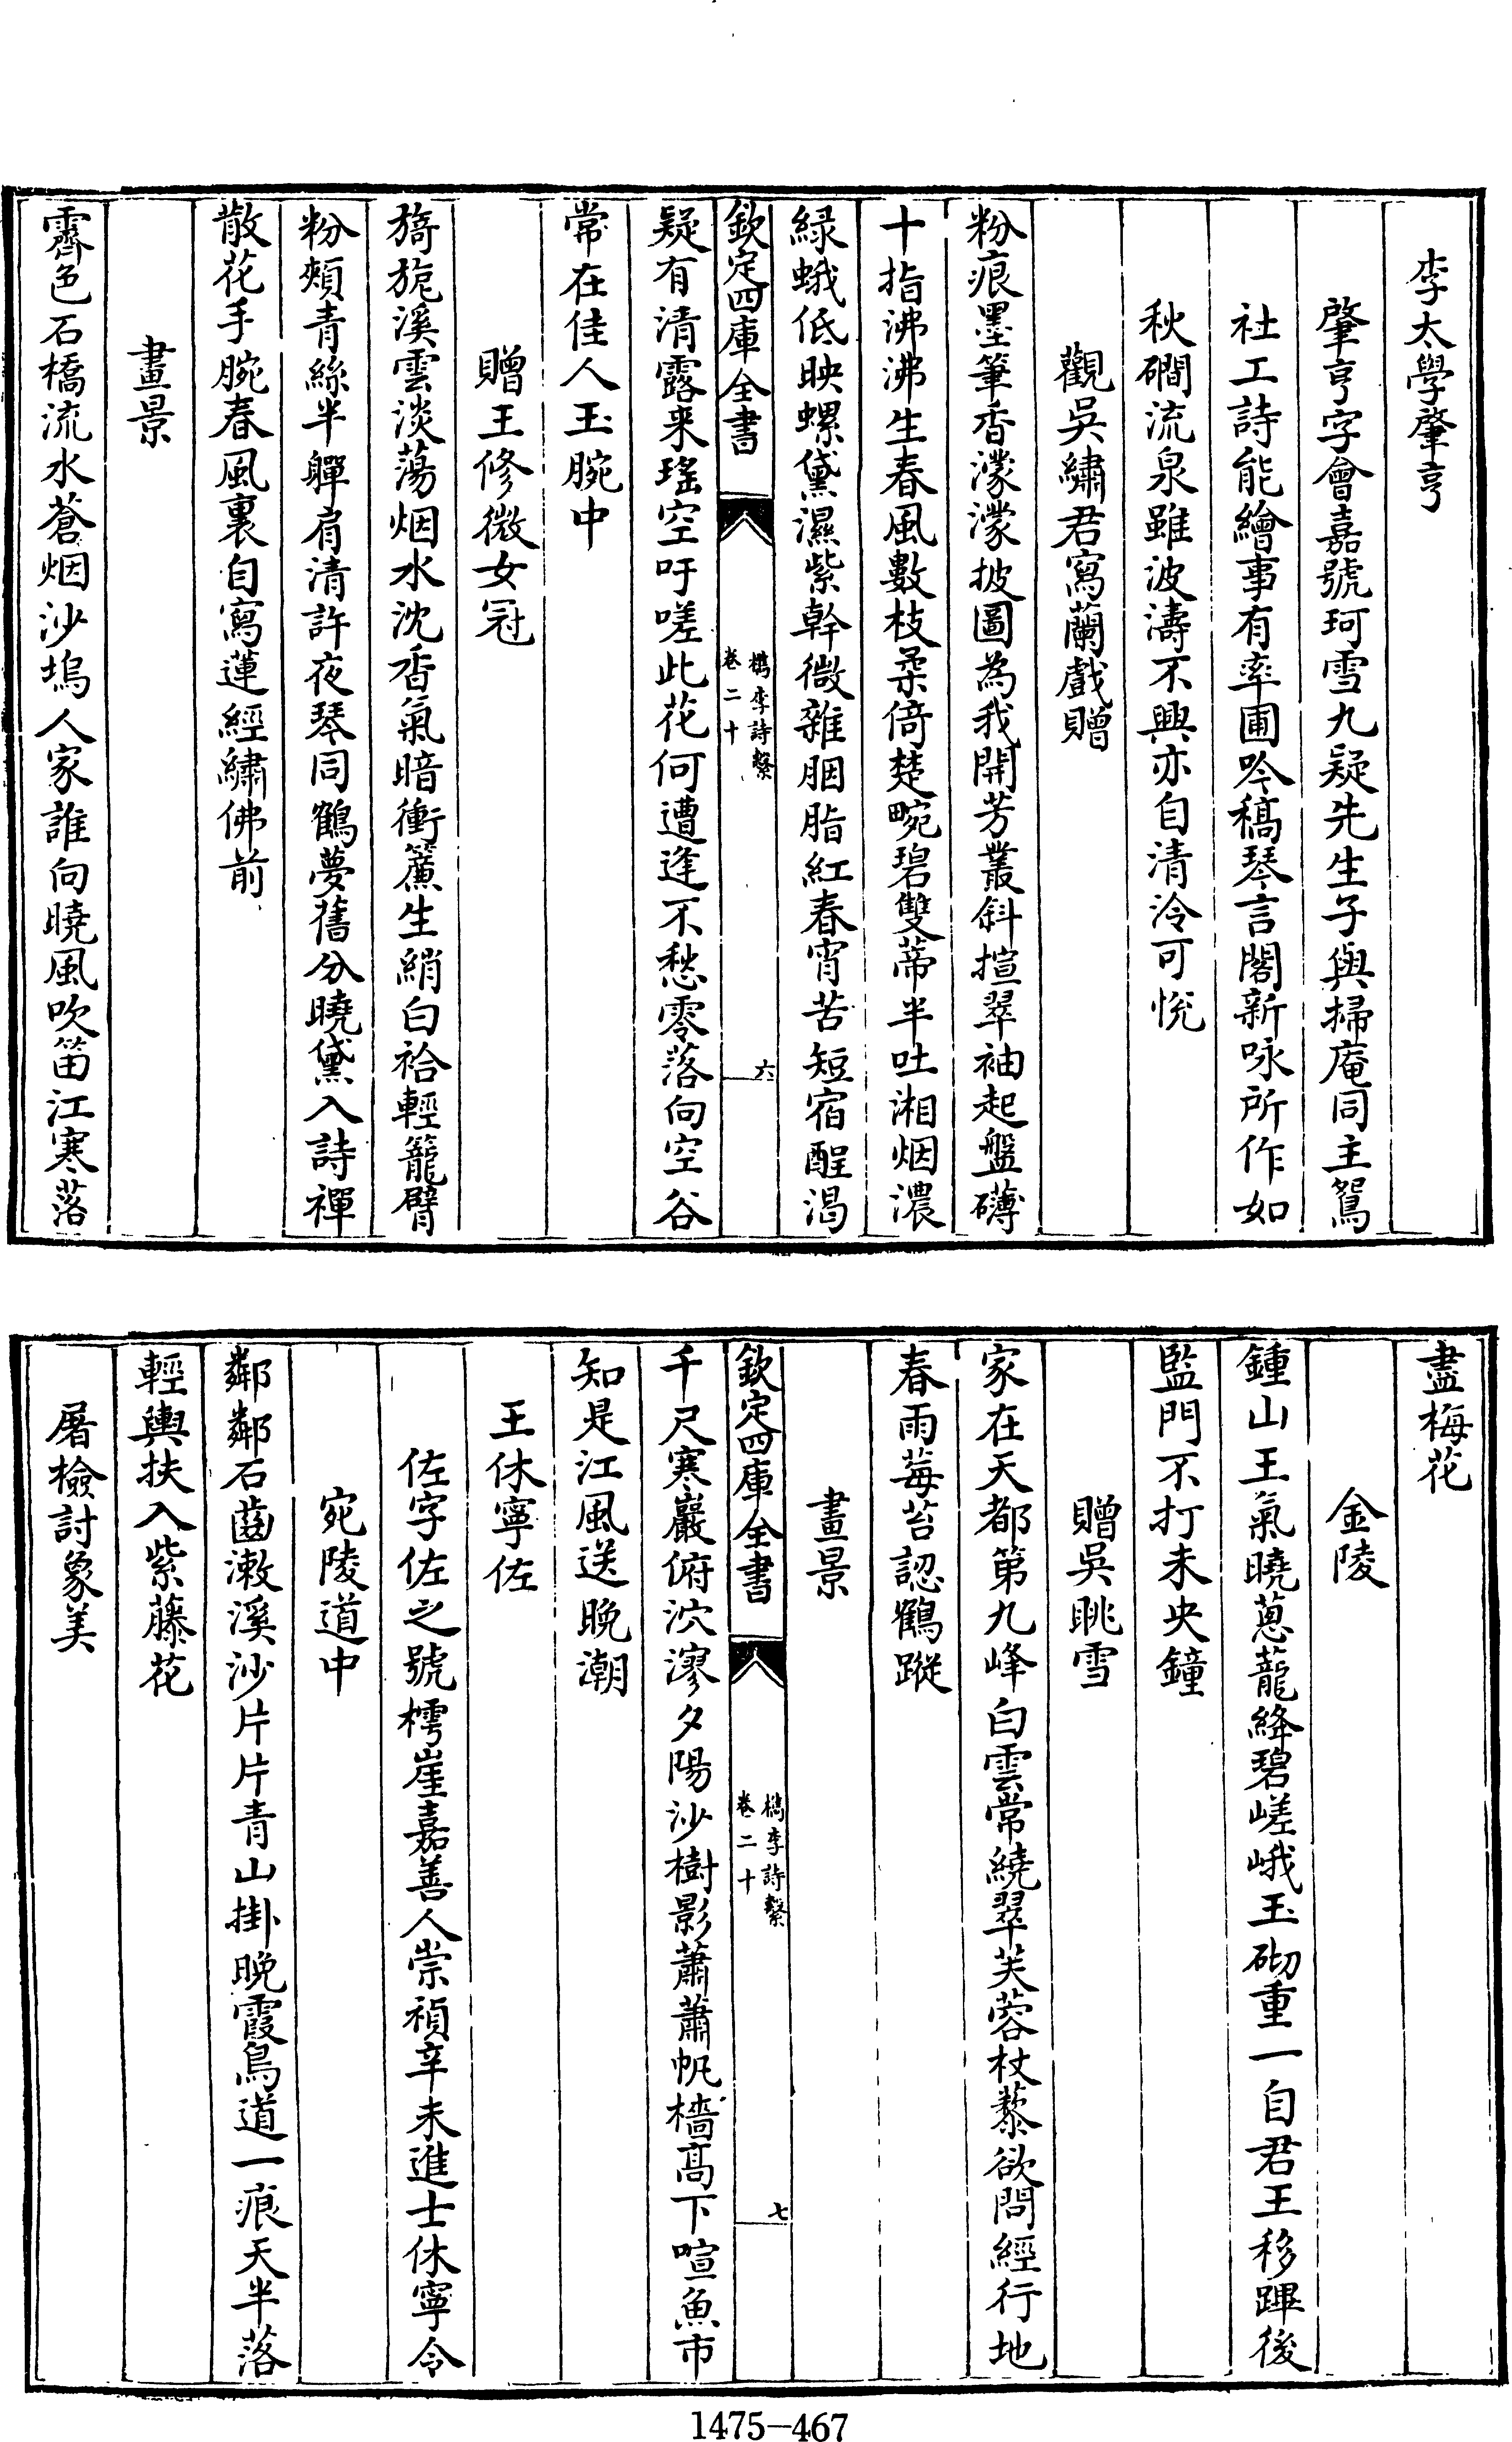 李太學肇亨
肇亨字會嘉號珂雪九疑先生子與掃庵同主鴛
社工詩能繪事有率圃吟稿琴言閣新咏所作如
秋磵流泉雖波濤不興亦自清泠可悅
觀吳繡君寫蘭戲贈
粉痕墨筆香濛濛披圖為我開芳叢斜揎翠袖起盤礴
十指沸沸生春風數枝柔倚楚畹碧雙蒂半吐湘烟濃
緑蛾低映螺黛濕紫幹微雜胭脂紅春宵苦短宿酲渴
欽定四庫全書
檇李詩繫
卷二十
六
疑有清露来瑤空吁嗟此花何遭逢不愁零落向空谷
常在佳人玉腕中
贈王修微女冠
旖旎溪雲淡蕩烟水沈香氣暗衝簾生綃白袷輕籠臂
粉頰青絲半嚲肩清許夜琴同鶴夢舊分曉黛入詩禪
散花手腕春風裏自寫蓮經繡佛前
畫景
霽色石橋流水蒼烟沙塢人家誰向曉風吹笛江寒落
盡梅花
金陵
鍾山王氣曉蔥蘢絳碧嵯峨玉砌重一自君王移蹕後
監門不打未央鐘
贈吳眺雪
家在天都第九峰白雲常繞翠芙蓉杖藜欲問經行地
春雨莓苔認鶴蹤
畫景
欽定四庫全書
檇李詩繫
卷二十
七
千尺寒巖俯泬漻夕陽沙樹影蕭蕭帆檣髙下喧魚市
知是江風送晚潮
王休寧佐
佐字佐之號樗崖嘉善人崇禎辛未進士休寧令
宛陵道中
鄰鄰石齒漱溪沙片片青山掛晚霞鳥道一痕天半落
輕輿扶入紫藤花
屠檢討象美
1475-467